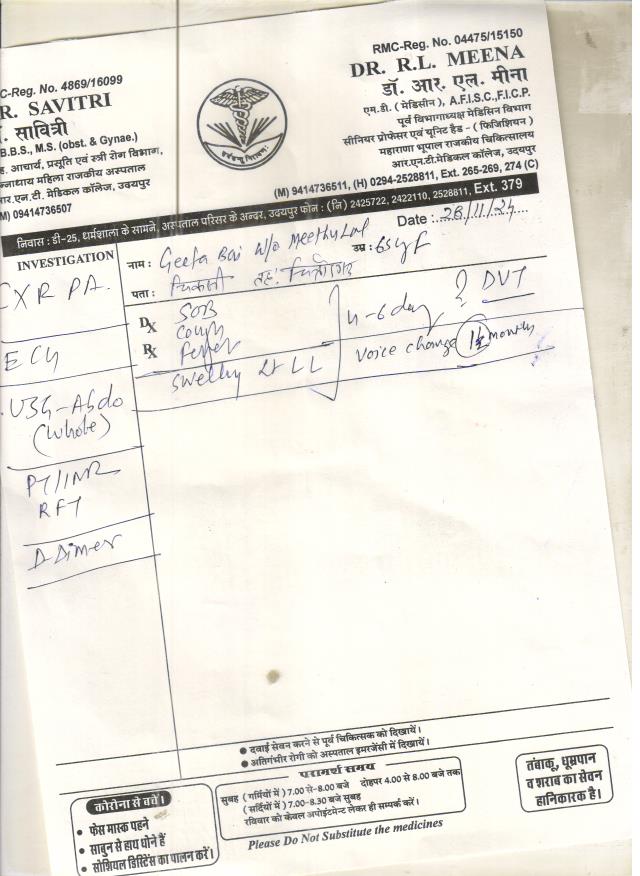 C-Reg. No. 4869/16099
R. SAVITRI
. सावित्री
B.B.S., M.S. (obst. & Gynae.)
ह. आचार्य, प्रसूति एवं स्त्री रोग विभाग,
न्नाधाय महिला राजकीय अस्पताल
आर.एन.टी. मेडिकल कॉलेज, उदयपुर
M) 09414736507
RMC-Reg. No. 04475/15150
DR. R.L. MEENA
डॉ. आर. एल. मीना
एम.डी. (मेडिसीन), A.F.I.S.C.,F.I.C.P.
पूर्व विभागाध्यक्ष मेडिसिन विभाग
सीनियर प्रोफेसर एवं यूनिट हैड - (फिजिशियन)
महाराणा भूपाल राजकीय चिकित्सालय
आर.एन.टी.मेडिकल कॉलेज, उदयपुर
(M) 9414736511, (H) 0294-2528811, Ext. 265-269, 274 (C)
निवास : डी-25, धर्मशाला के सामने, अस्पताल परिसर के अन्दर, उदयपुर फोन : (नि) 2425722, 2422110, 2528811, Ext. 379
Date : 28/11/24
INVESTIGATION
नाम : Geeta Bai W/o Meethu Lal उम्र : 65y/F
पता :
CXR PA.
ECG
USG-Abdo
(Whole)
PT/INR
RFT
D-Dimer
Dx SOB
Cough
Rx Fever
Swelling Lt LL
4-6 day ? DVT
Voice change 1½ months
● दवाई सेवन करने से पूर्व चिकित्सक को दिखायें।
● अतिगंभीर रोगी को अस्पताल इमरजेंसी में दिखायें।
परामर्श समय
सुबह (गर्मियों में) 7.00 से-8.00 बजे दोहपर 4.00 से 8.00 बजे तक
(सर्दियों में) 7.00-8.30 बजे सुबह
रविवार को केवल अपोइंटमेन्ट लेकर ही सम्पर्क करें।
Please Do Not Substitute the medicines
कोरोना से बचें।
• फेस मास्क पहने
• साबुन से हाथ धोने हैं
• सोशियल डिस्टेंस का पालन करें।
तंबाकू, धूम्रपान
व शराब का सेवन
हानिकारक है।